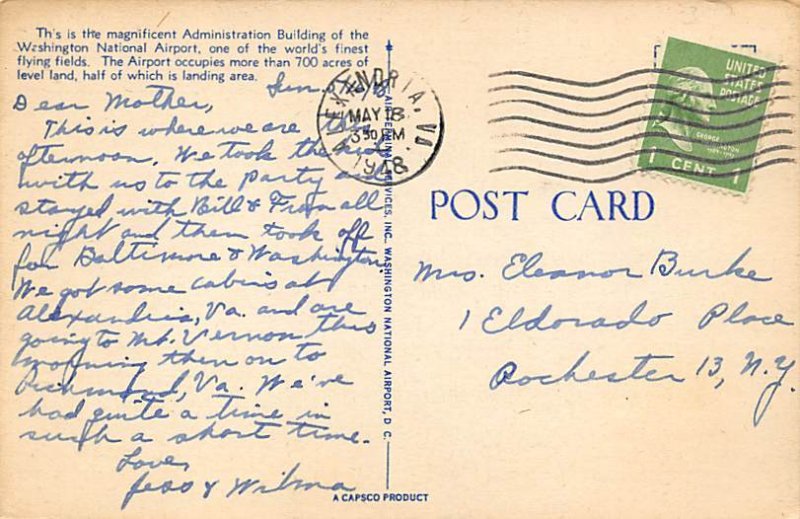 This is the magnificent Administration Building of the
Washington National Airport, one of the world's finest
flying fields. The Airport occupies more than 700 acres of
level land, half of which is landing area.
Sun.
Dear Mother,
This is where we are this
afternoon. We took the
with us to the party and
stayed with Bill & Fran all
night and then took off
for Baltimore & Washington.
We got some cabins at
Alexandria, Va. and are
going to Mt. Vernon this
morning then on to
Richmond, Va. We've
had quite a time in
such a short time.
Love,
Jess & Wilma
AIR TERMINAL SERVICES, INC., WASHINGTON NATIONAL AIRPORT, D. C.
A CAPSCO PRODUCT
ALEXANDRIA, VA.
MAY 18
3 30 PM
1948
UNITED
STATES
POSTAGE
GEORGE
WASHINGTON
1 CENT 1
POST CARD
Mrs. Eleanor Burke
1 Eldorado Place
Rochester 13, N.Y.